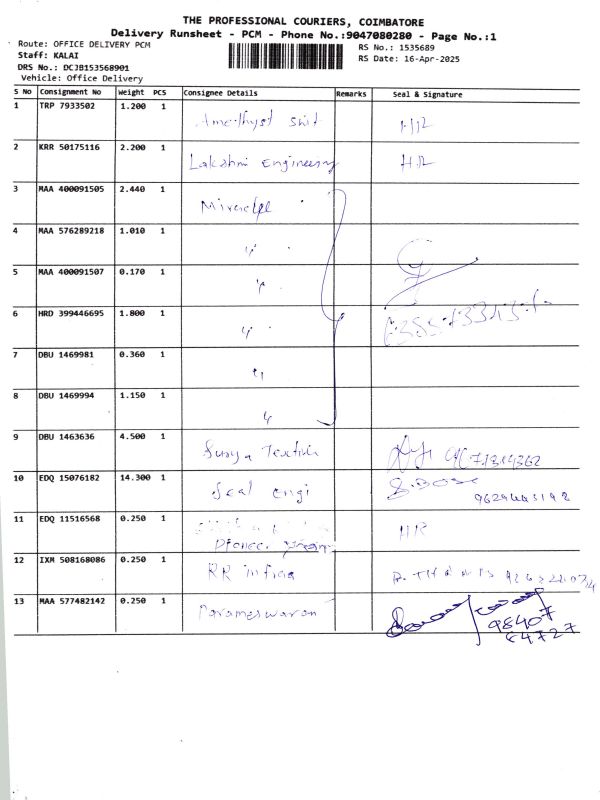 THE PROFESSIONAL COURIERS, COIMBATORE
Delivery Runsheet - PCM - Phone No.:9047080280 - Page No.:1
Route: OFFICE DELIVERY PCM
Staff: KALAI
DRS No.: DCJB153568901
Vehicle: Office Delivery
RS No.: 1535689
RS Date: 16-Apr-2025
S No Consignment No Weight PCS Consignee Details Remarks Seal & Signature
1 TRP 7933502 1.200 1
2 KRR 50175116 2.200 1 Lakshmi Engineering
3 MAA 400091505 2.440 1
4 MAA 576289218 1.010 1 "
5 MAA 400091507 0.170 1 "
6 HRD 399446695 1.800 1 "
7 DBU 1469981 0.360 1 "
8 DBU 1469994 1.150 1 "
9 DBU 1463636 4.500 1 Surya Textile
10 EDQ 15076182 14.300 1 Seal engi S.BOSE
11 EDQ 11516568 0.250 1 HR
12 IXM 508168086 0.250 1 RR infraa
13 MAA 577482142 0.250 1 Parameswaran 98407
84727